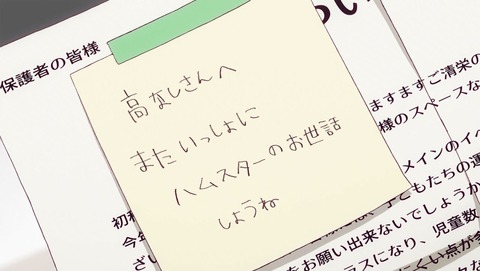 保護者の皆様
高なしさんへ
またいっしょに
ハムスターのお世話
しようね
ますますご清栄の
様のスペースな
メインのイベ
子どもたちの運
をお願い出来ないでしょうか
ラスになり、児童数
くい点が今